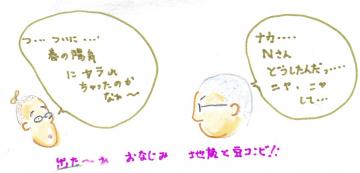 つ‥ついに‥‥
春の陽気
にヤラれ
ちゃったのか
なぁ〜
ナカ‥‥‥
Nさん
どうしたんだっ‥‥
ニヤ、ニヤ
して‥‥
出た〜ぁ おなじみ 地蔵と豆コンビ!!